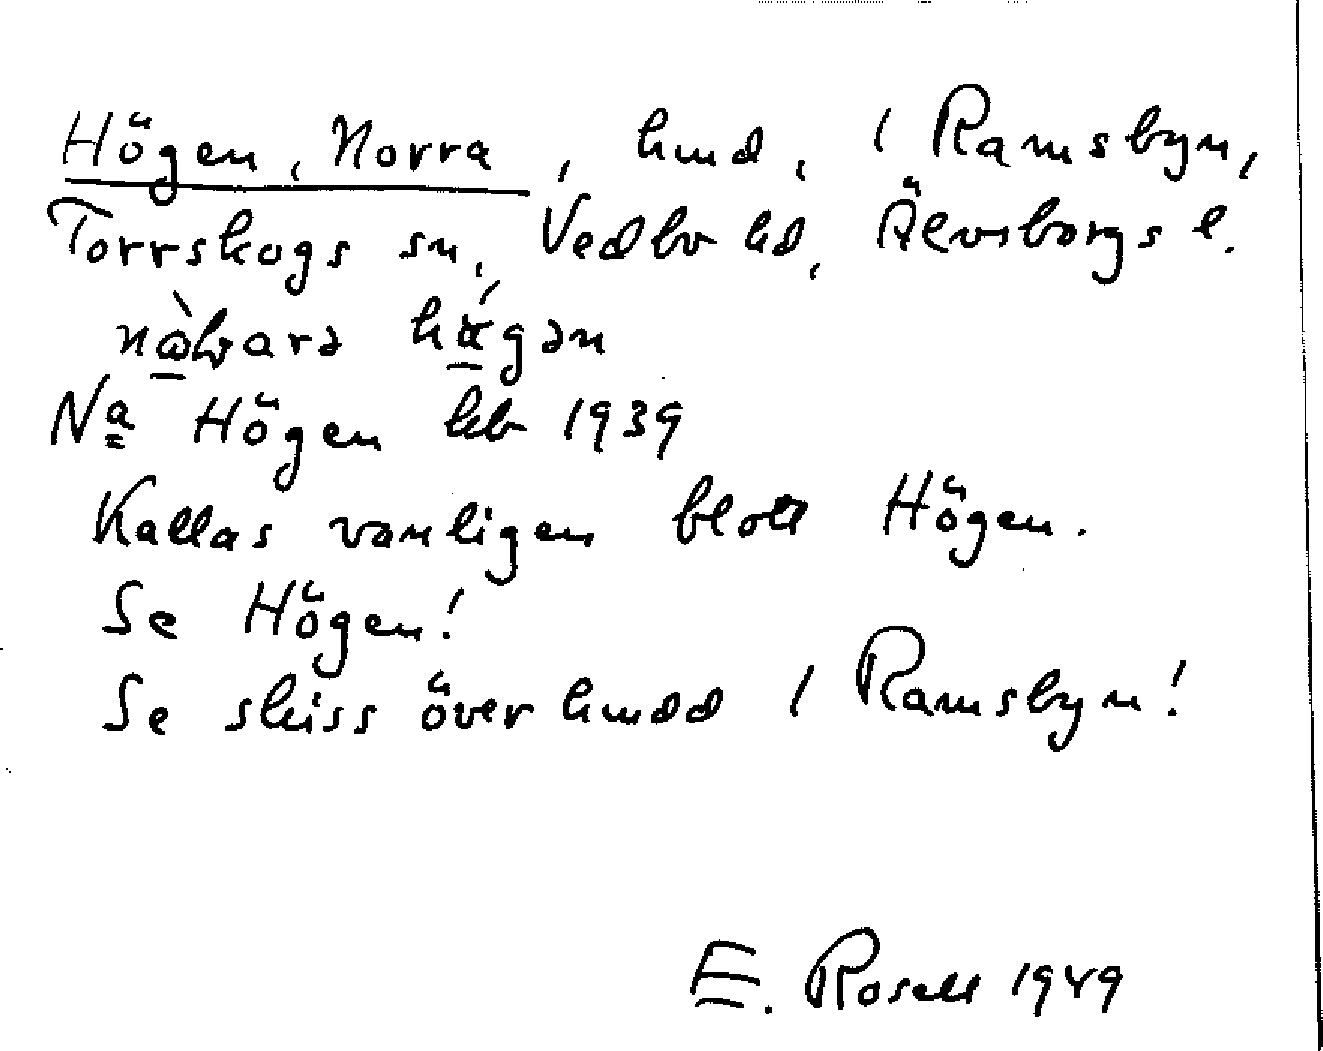 Högen, Norra, hmd, 1 Ramsbyn,
Torrskogs sn, Vedbo hd, Älvsborgs l.
hǿgən
Nª Högen lb 1939
Kallas vanligen blott Högen.
Se Högen!
Se skiss över hmdd 1 Ramsbyn!
E. Rosell 1949